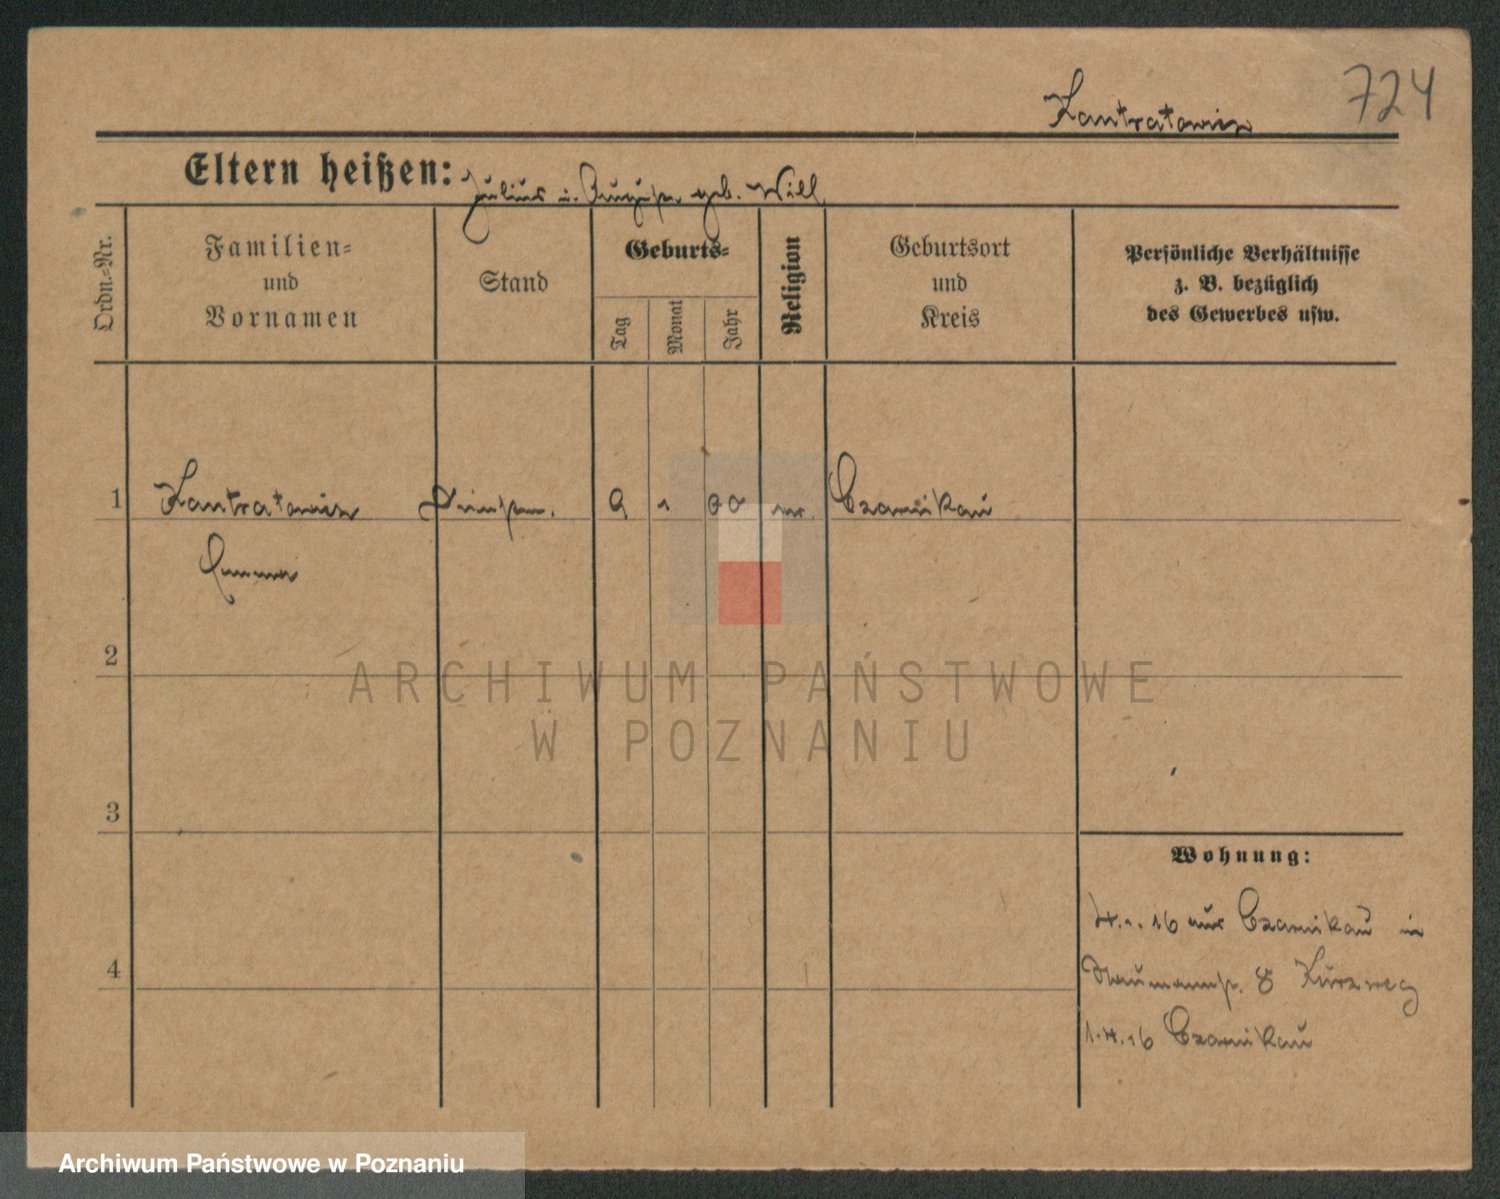 724
Kantratowicz
Eltern heißen: Julius u. August. geb. Will
Ordn.-Nr.
Familien-
und
Vornamen
Stand
Geburts-
Tag
Monat
Jahr
Religion
Geburtsort
und
Kreis
Persönliche Verhältnisse
z. B. bezüglich
des Gewerbes usw.
1 Kantratowicz 9 1 00 Czarnikau
Emma
2
3
4
Wohnung:
4.1.16 aus Czarnikau in
Naumannstr. 8 Kurzweg
1.4.16 Czarnikau
ARCHIWUM PAŃSTWOWE
W POZNANIU
Archiwum Państwowe w Poznaniu